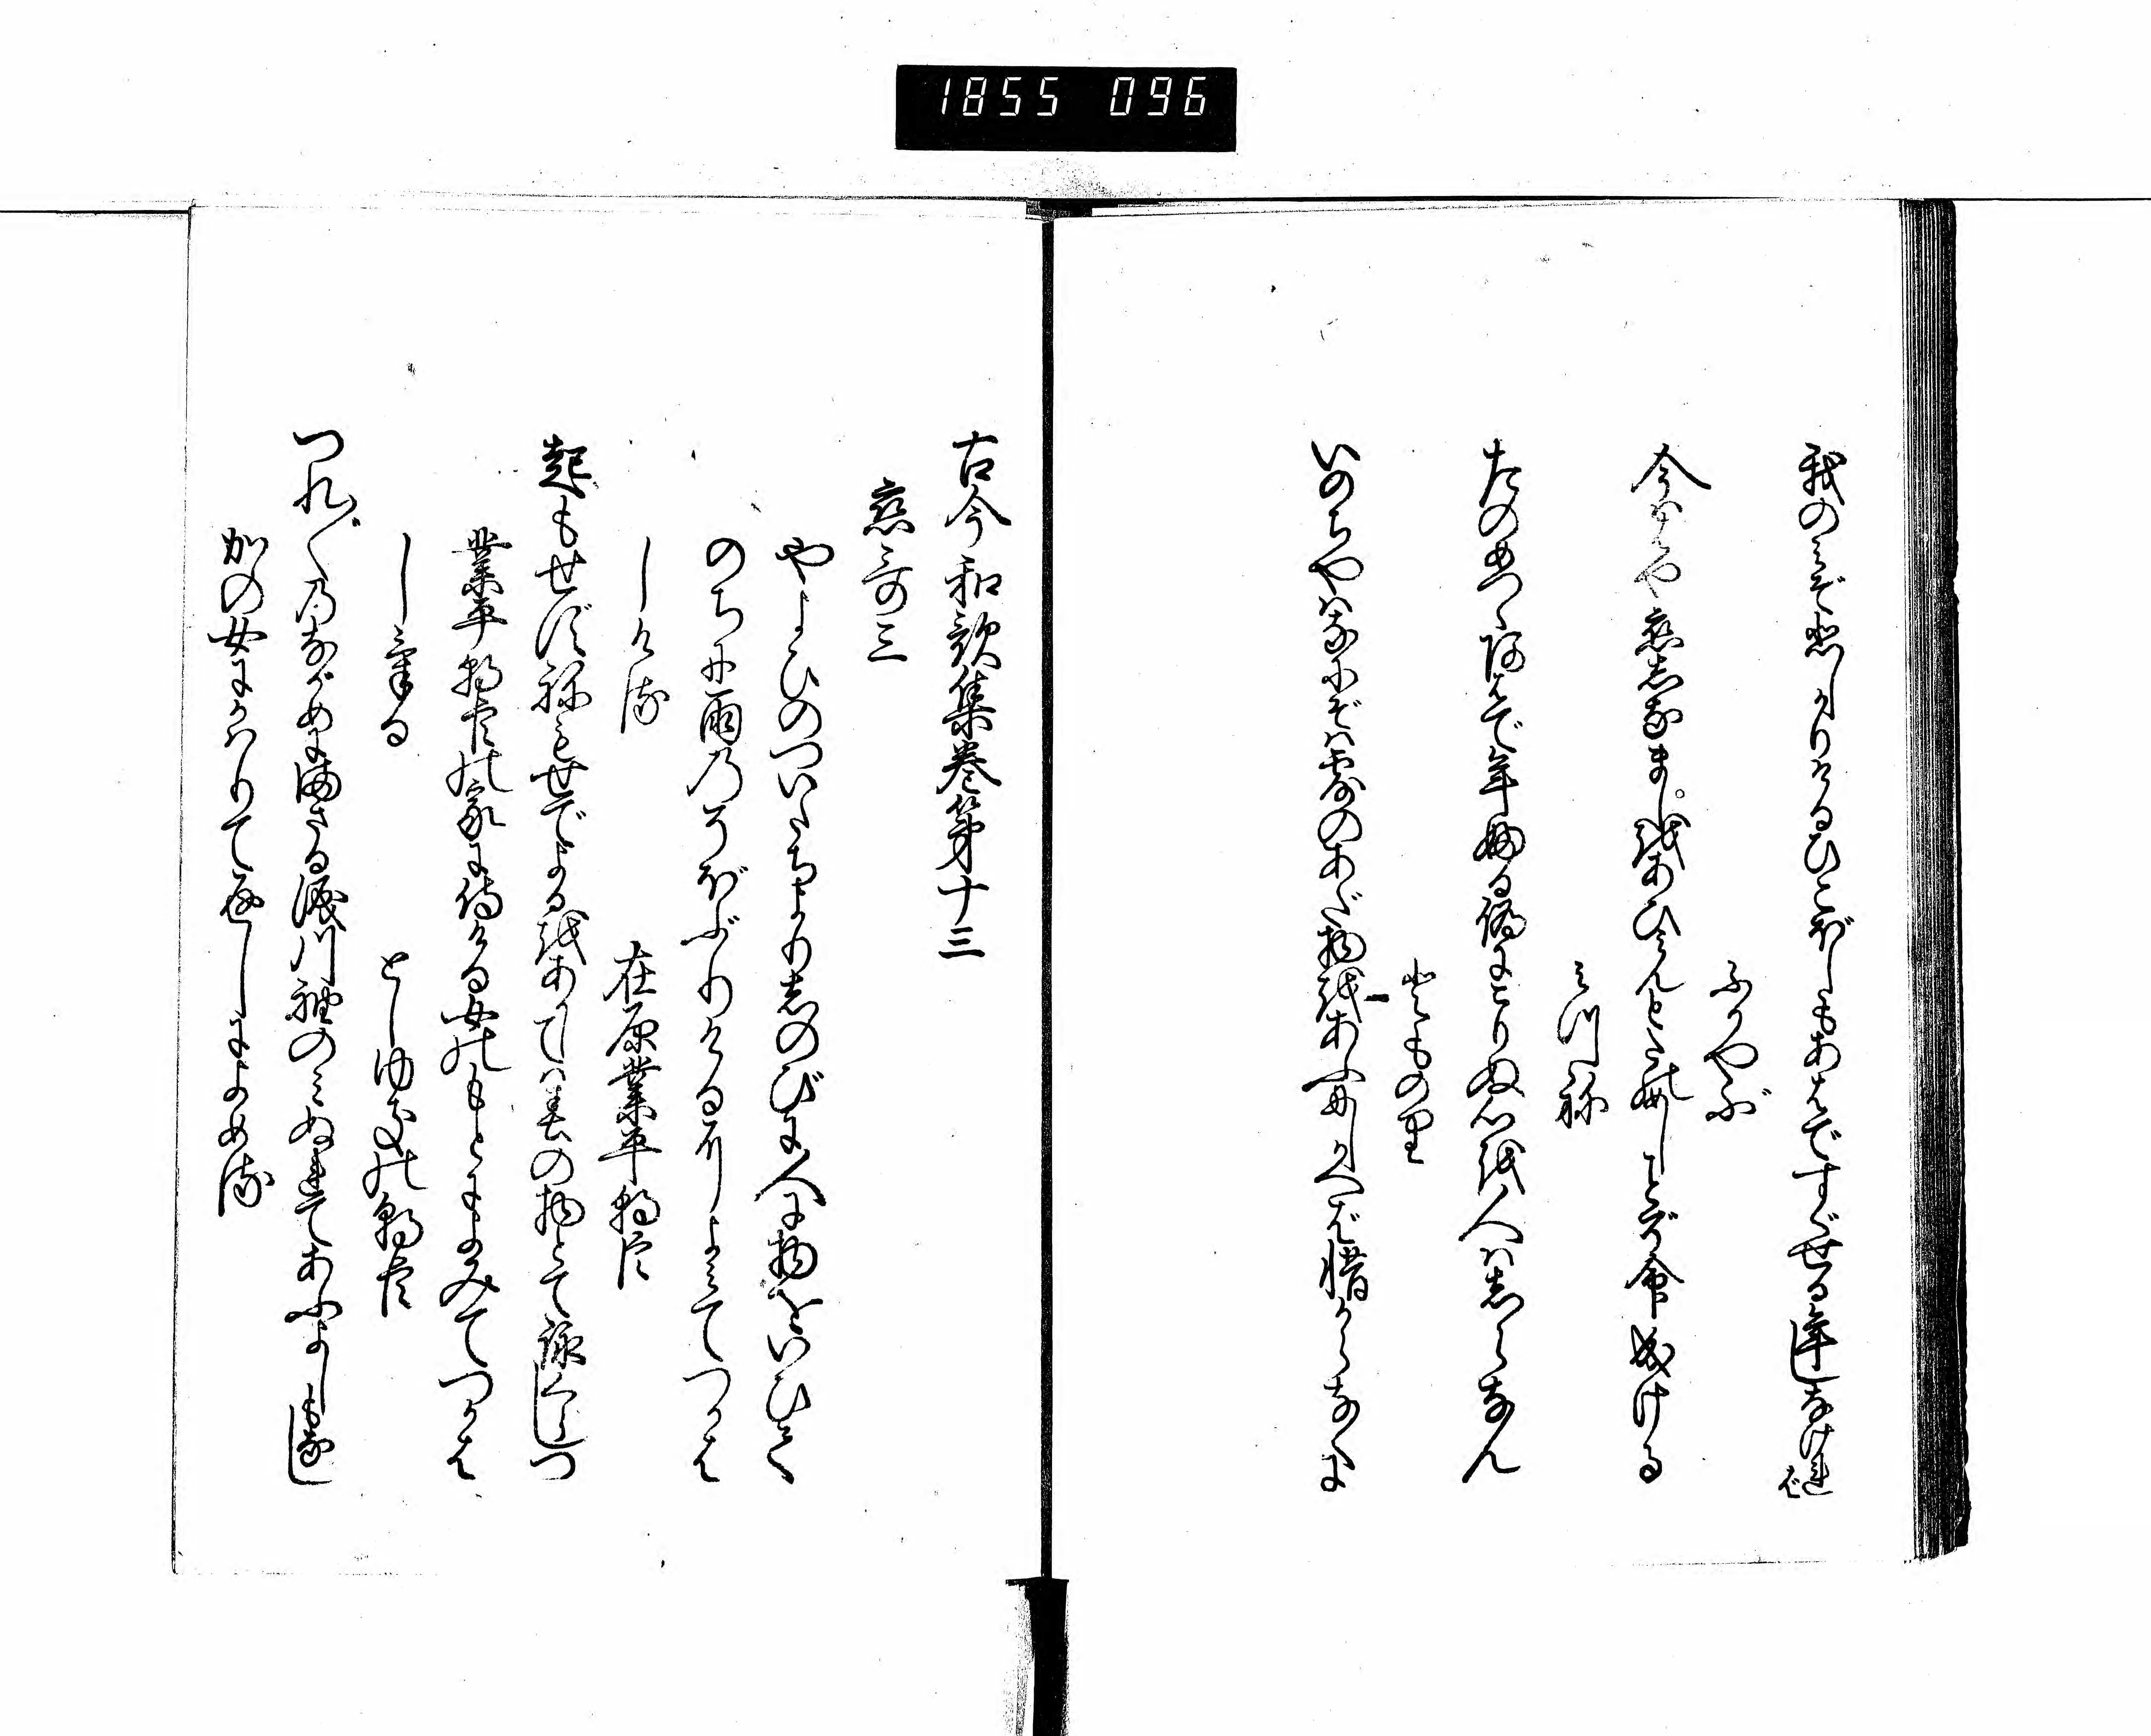 1855 096
我のみぞ悲しかりけるひこぼしもあはですぐせる年しなければ
ふかやぶ
今ははや恋しなましをあひみんとたのめしことぞ命成ける
みつね
たのめつゝあはで年ふる偽にこりぬ心を人はしらなん
とものり
いのちやはなにぞは露のあだ物をあふにしかへばおしからなくに
古今和歌集巻第十三
恋哥三
やよひのついたちよりしのびに人に物をいひて
のちに雨のそぼふりけるによみてつかは
しける
在原業平朝臣
起もせずねもせでよるをあかしては春の物とて詠くらしつ
業平朝臣の家に侍ける女のもとによみてつかは
しける
としゆきの朝臣
つれ〴〵のながめにまさる涙川袖のみぬれてあふよしもなし
かの女にかはりて返しによめる